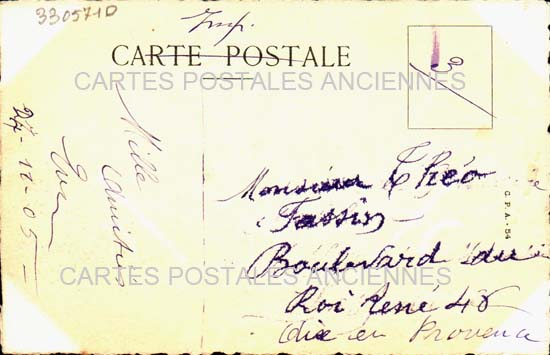 330571D
Imp.
CARTE POSTALE
CARTES POSTALES ANCIENNES
Mille
Amitiés
27-10-05
Monsieur Théo
Tassin
Boulevard du
Roi René 48
Aix en Provence
G.P.A.-54
CARTES POSTALES ANCIENNES